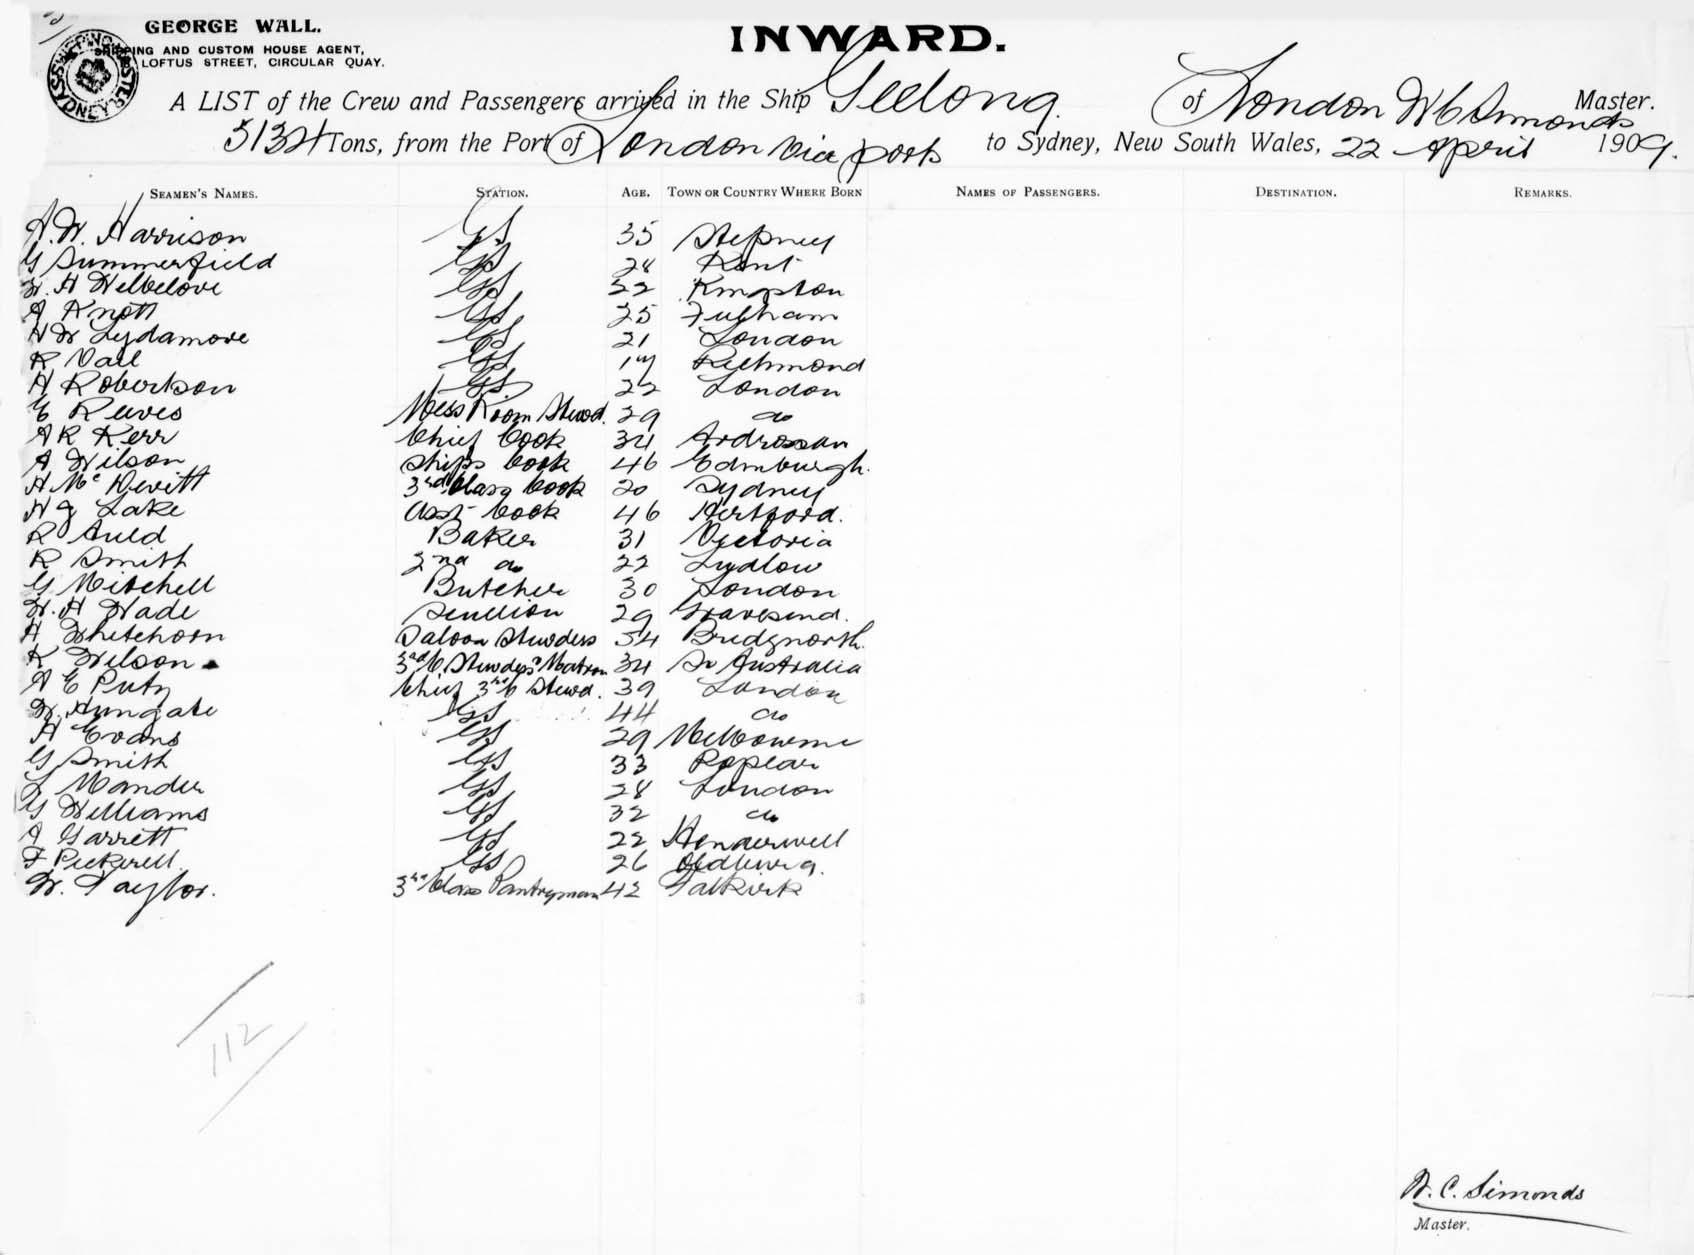 GEORGE WALL.
SHIPPING AND CUSTOM HOUSE AGENT,
LOFTUS STREET, CIRCULAR QUAY.
SYDNEY
INWARD.
A LIST of the Crew and Passengers arrived in the Ship Geelong of London W C Simonds Master.
5134 Tons, from the Port of London via ports to Sydney, New South Wales, 22 April 1909.
SEAMEN'S NAMES. STATION. AGE. TOWN OR COUNTRY WHERE BORN NAMES OF PASSENGERS. DESTINATION. REMARKS.
A. W. Harrison GS 35 Stepney
G Summerfield GS 28 Kent
W. H Welbelove GS 22 Kingston
A Knott GS 25 Fulham
H W Lydamore GS 21 London
R Vall GS 17 Richmond
H Robertson GS 22 London
E Reeves Mess Room Stewd. 29 do
A R Kerr Chief Cook 34 Ardrossan
A Wilson Ships Cook 46 Edinburgh.
H McDevitt 3rd Class Cook 20 Sydney
H J Lake Asst Cook 46 Hertford.
R Auld Baker 31 Victoria
R Smith 2nd do 22 Ludlow
G Mitchell Butcher 30 London
W. H Wade Scullion 29 Gravesend.
H Whitehorn Saloon Stewdess 34 Bridgnorth.
K Wilson 3rd C. Stewdss Matron 34 So Australia
A E Puty Chief 3rd C Stewd. 39 London
W. Hungate GS 44 do
H Evans GS 29 Melbourne
G Smith GS 33 Poplar
L Mander GS 28 London
G Williams GS 32 do
A Garrett GS 22
F Pickerell. GS 26
W. Taylor. 3rd Class Pantryman 42 Falkirk
112
W. C. Simonds
Master.